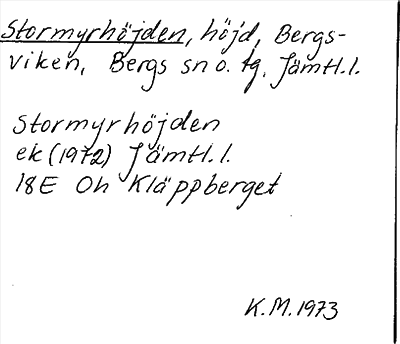 Stormyrhöjden, höjd, Bergs-
viken, Bergs sn o. tg, Jämtl.l.
Stormyrhöjden
ek (1972) Jämtl.l.
18E Oh Kläppberget
K.M.1973